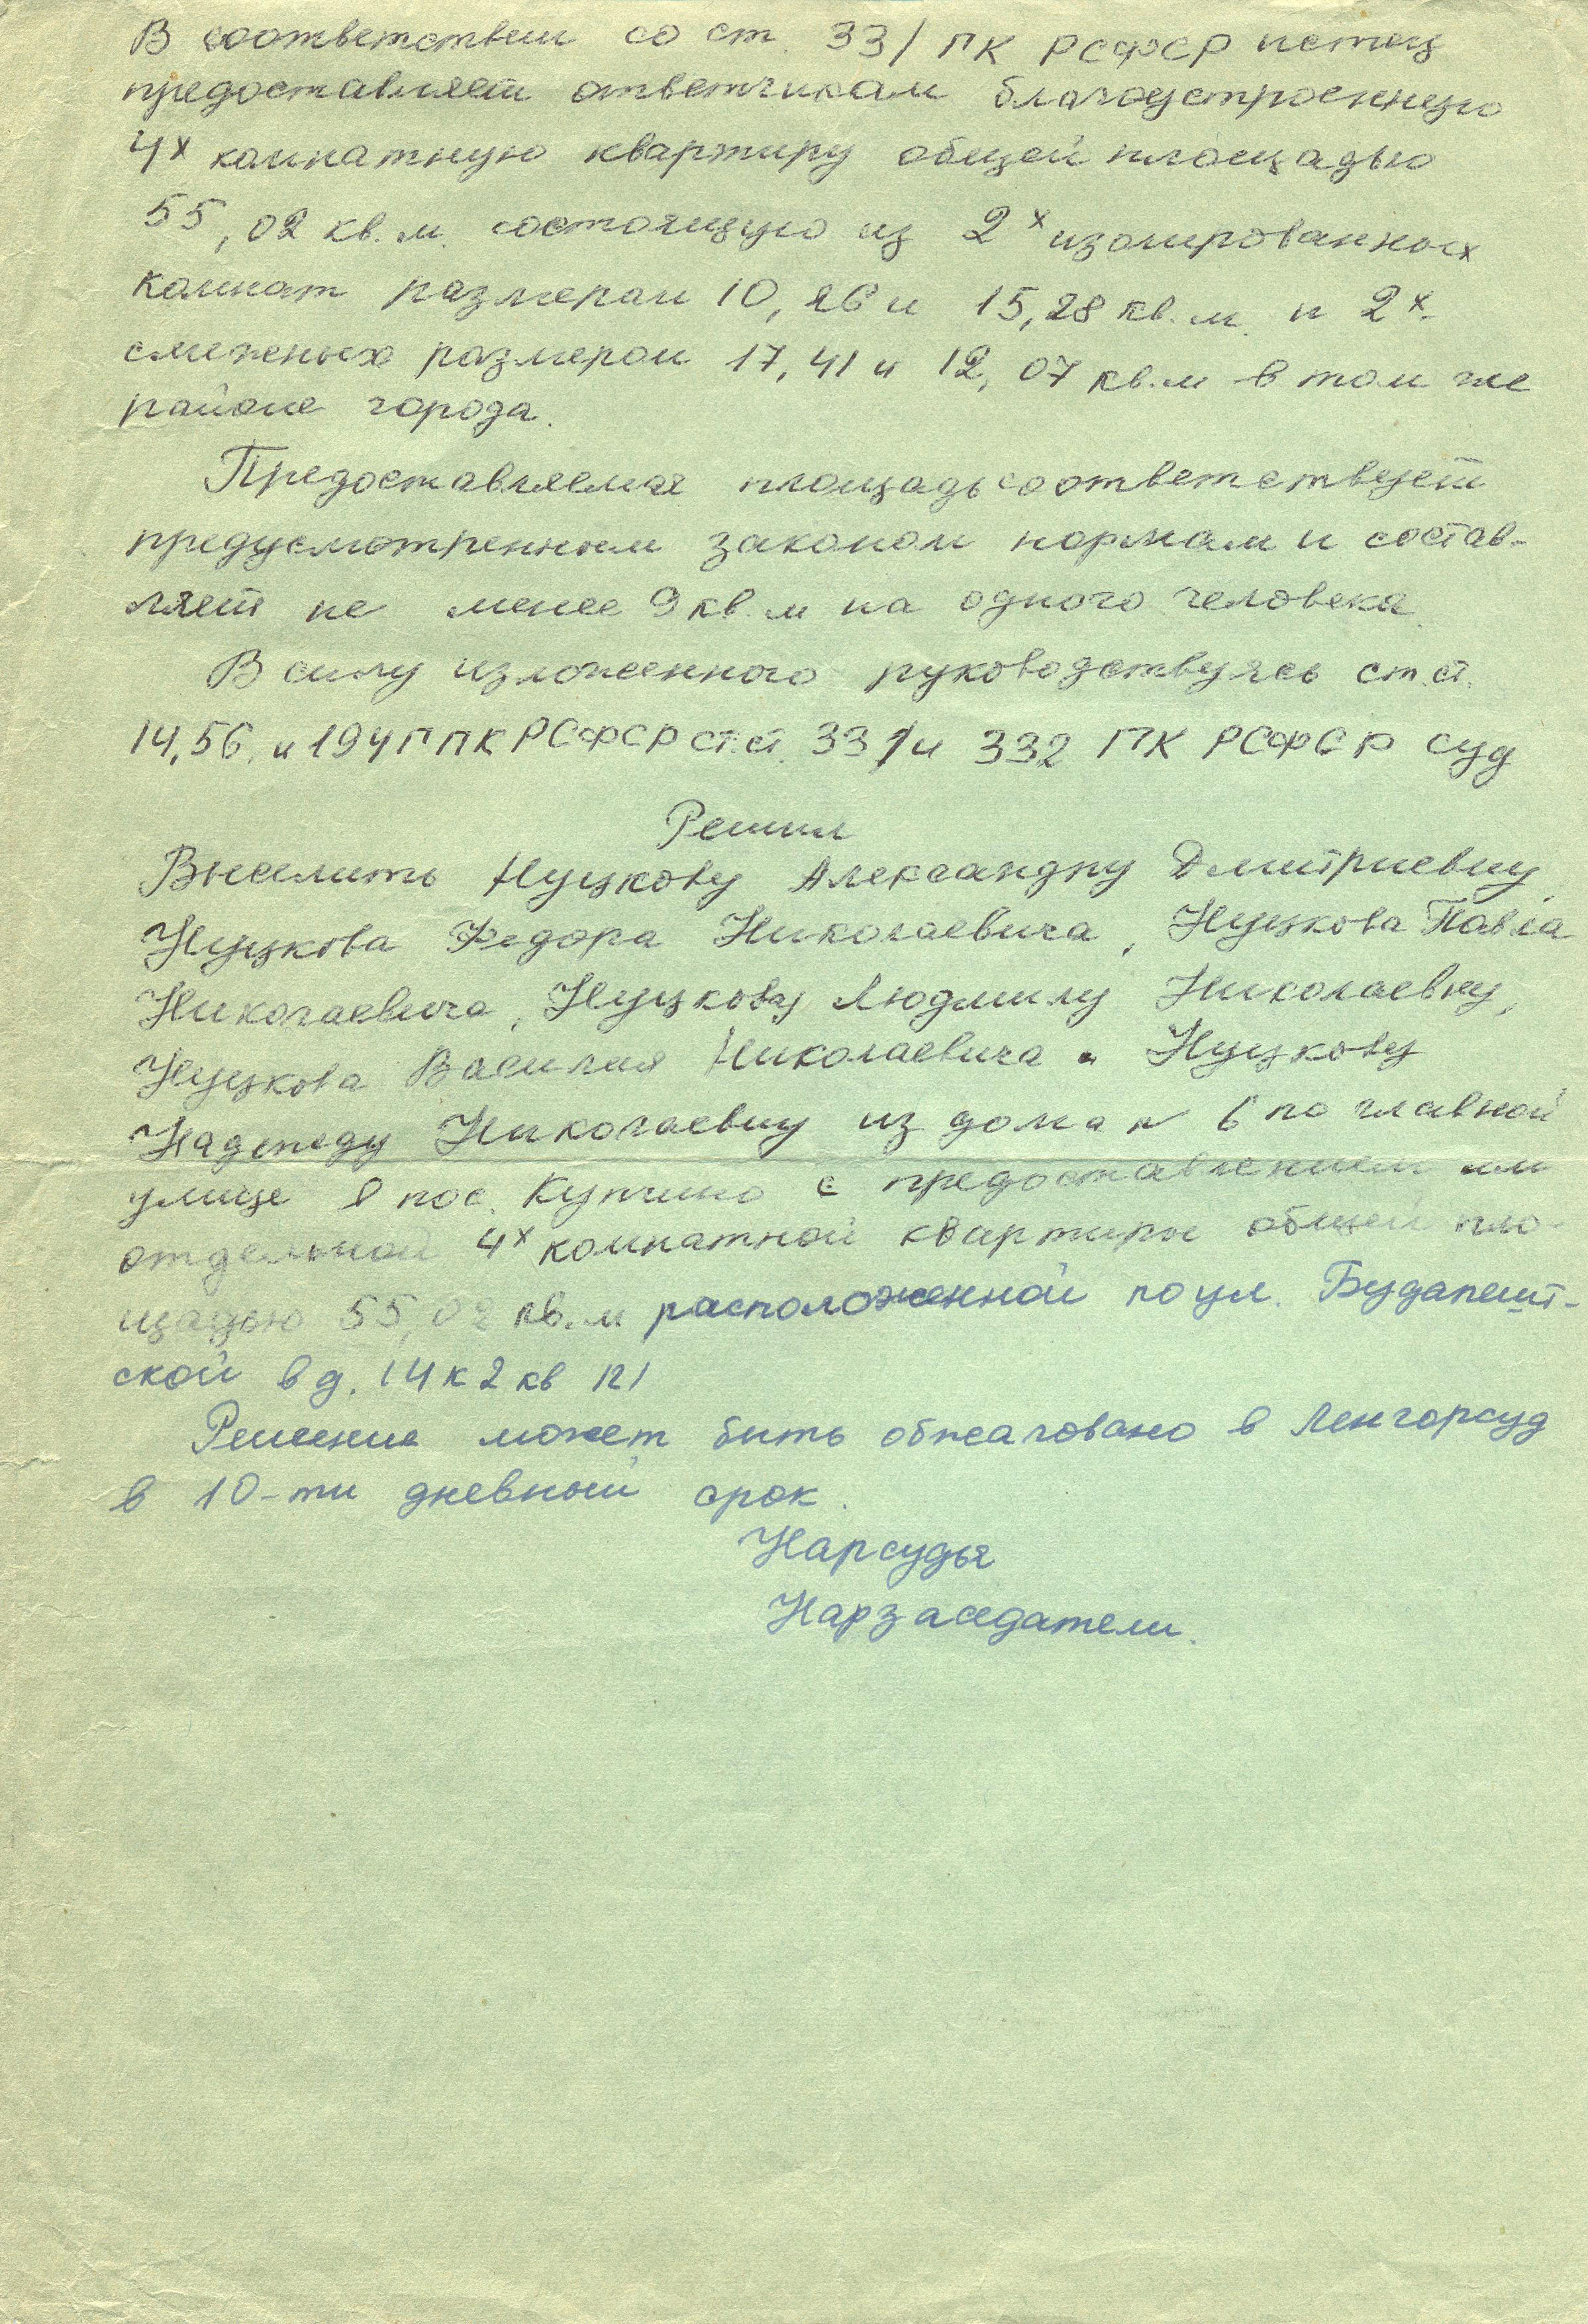 В соответствии со ст. 331 ГК РСФСР истец
предоставляет ответчикам благоустроенную
4х комнатную квартиру общей площадью
55,02 кв.м. состоящую из 2х изолированных
комнат размером 10,26 и 15,28 кв.м. и 2х
смежных размером 17,41 и 12,07 кв.м в том же
районе города.
Предоставляемая площадь соответствует
предусмотренным законом нормам и состав-
ляет не менее 9 кв.м на одного человека.
В силу изложенного руководствуясь ст.ст.
14,56, и 194 ГПК РСФСР ст.ст. 331 и 332 ГК РСФСР суд
Решил
Выселить Нуцкову Александру Дмитриевну,
Нуцкова Федора Николаевича, Нуцкова Павла
Николаевича, Нуцкову Людмилу Николаевну,
Нуцкова Василия Николаевича и Нуцкову
Надежду Николаевну из дома № 6 по главной
улице в пос. Купчино с предоставлением им
отдельной 4х комнатной квартиры общей пло-
щадью 55,02 кв.м расположенной по ул. Будапешт-
ской в д. 14 к 2 кв 121
Решение может быть обжаловано в Ленгорсуд
в 10-ти дневный срок.
Нарсудья
Нарзаседатели.